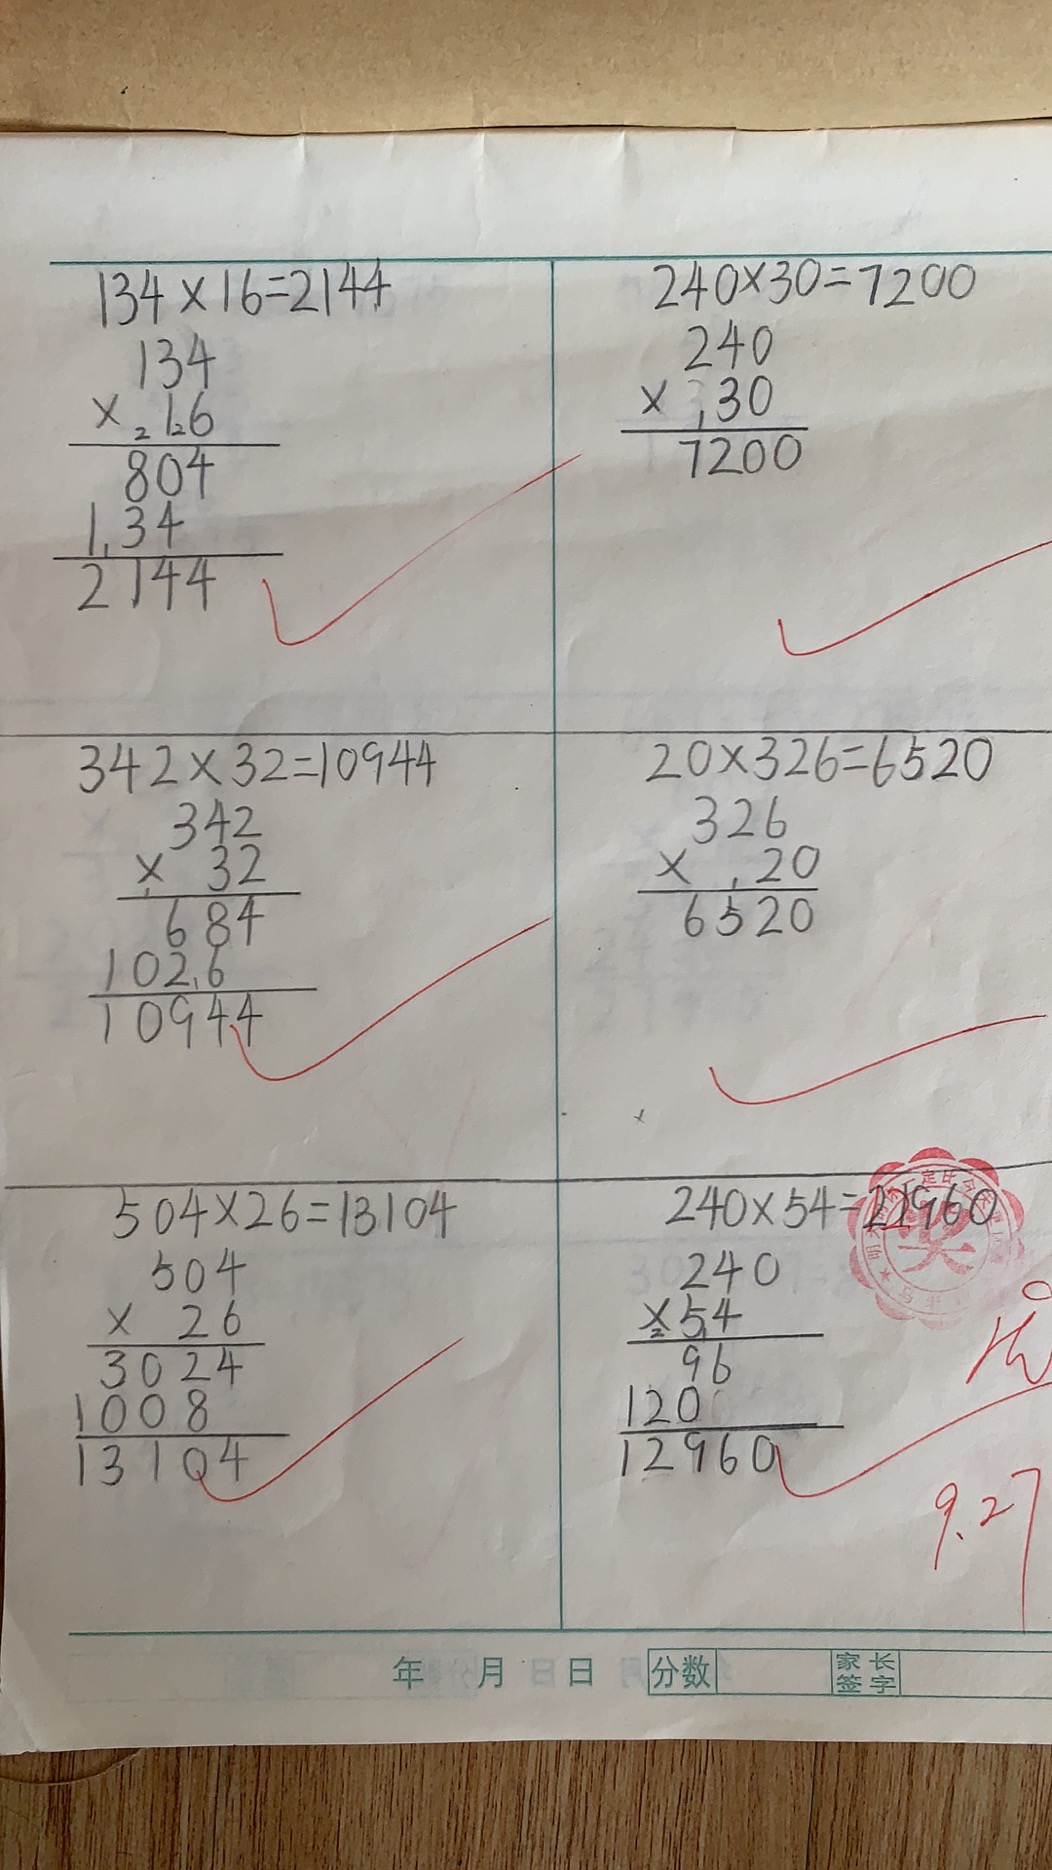 134×16=2144
134
×16
804
134
2144
240×30=7200
240
×30
7200
342×32=10944
342
×32
684
1026
10944
20×326=6520
326
×20
6520
504×26=13104
504
×26
3024
1008
13104
240×54=21960
240
×54
96
120
12960
奖
优
9.27
年 月 日 分数 家长签字